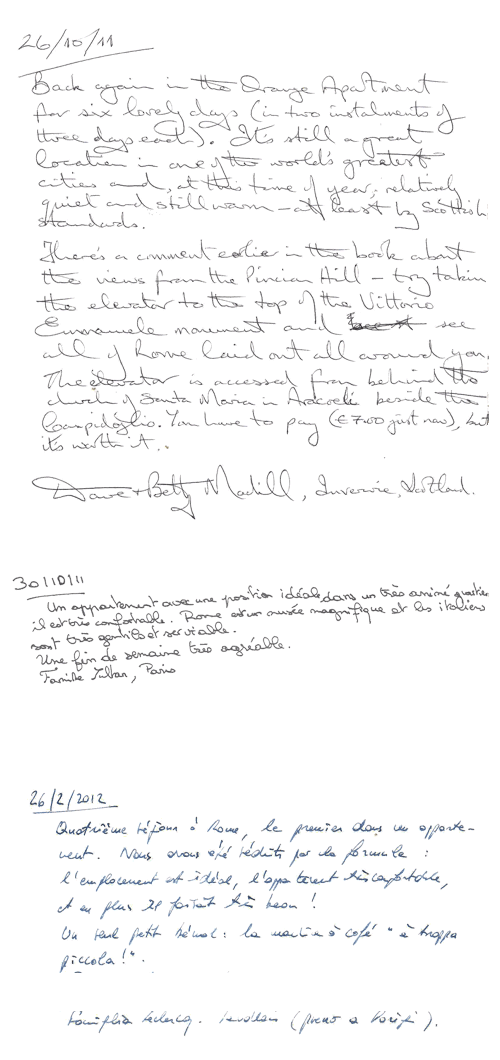 26/10/11
Back again in the Orange Apartment
for six lovely days (in two instalments of
three days each). It's still a great
location in one of the world's greatest
cities and, at this time of year, relatively
quiet and still warm – at least by Scottish
standards.
There's a comment earlier in the book about
the views from the Pincian Hill – try takin
the elevator to the top of the Vittorio
Emmanuele monument and see
all of Rome laid out all around you.
The elevator is accessed from behind the
church of Santa Maria in Aracoeli beside the
Campidoglio. You have to pay (€7.00 just now), but
its worth it..
Dave + Betty , , Scotland.
30/10/11
Un appartement avec une position idéale dans un très animé quartie
il est très confortable. Rome est un musée magnifique et les italiens
sont très gentils et serviable.
Une fin de semaine très agréable.
Famille , Paris
26/2/2012
Quatrième séjour à Rome, le premier dans un apparte-
ment. Nous avons été séduits par la formule :
l'emplacement est idéal, l'appartement très confortable,
et en plus il faisait très beau !
Un seul petit bémol : la machine à café "è troppo
piccola !".
Famiglia Leclercq. (preno a Parigi).